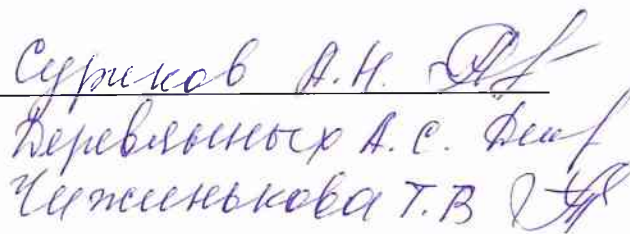 Суриков А.Н.
Деревянных А.С.
Чиженькова Т.В